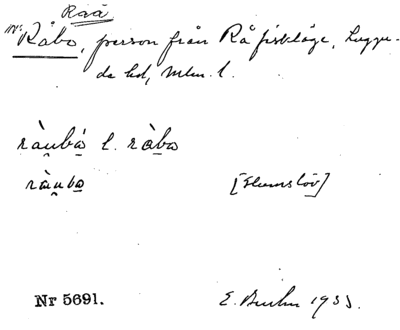 Raå
Råbo, person från Rå fiskläge, Luggu-
de hd, Mlm. l.
ràu̯bò l. ràbo
ràu̯bo [Glumslöv]
Nr 5691. E. 1933.